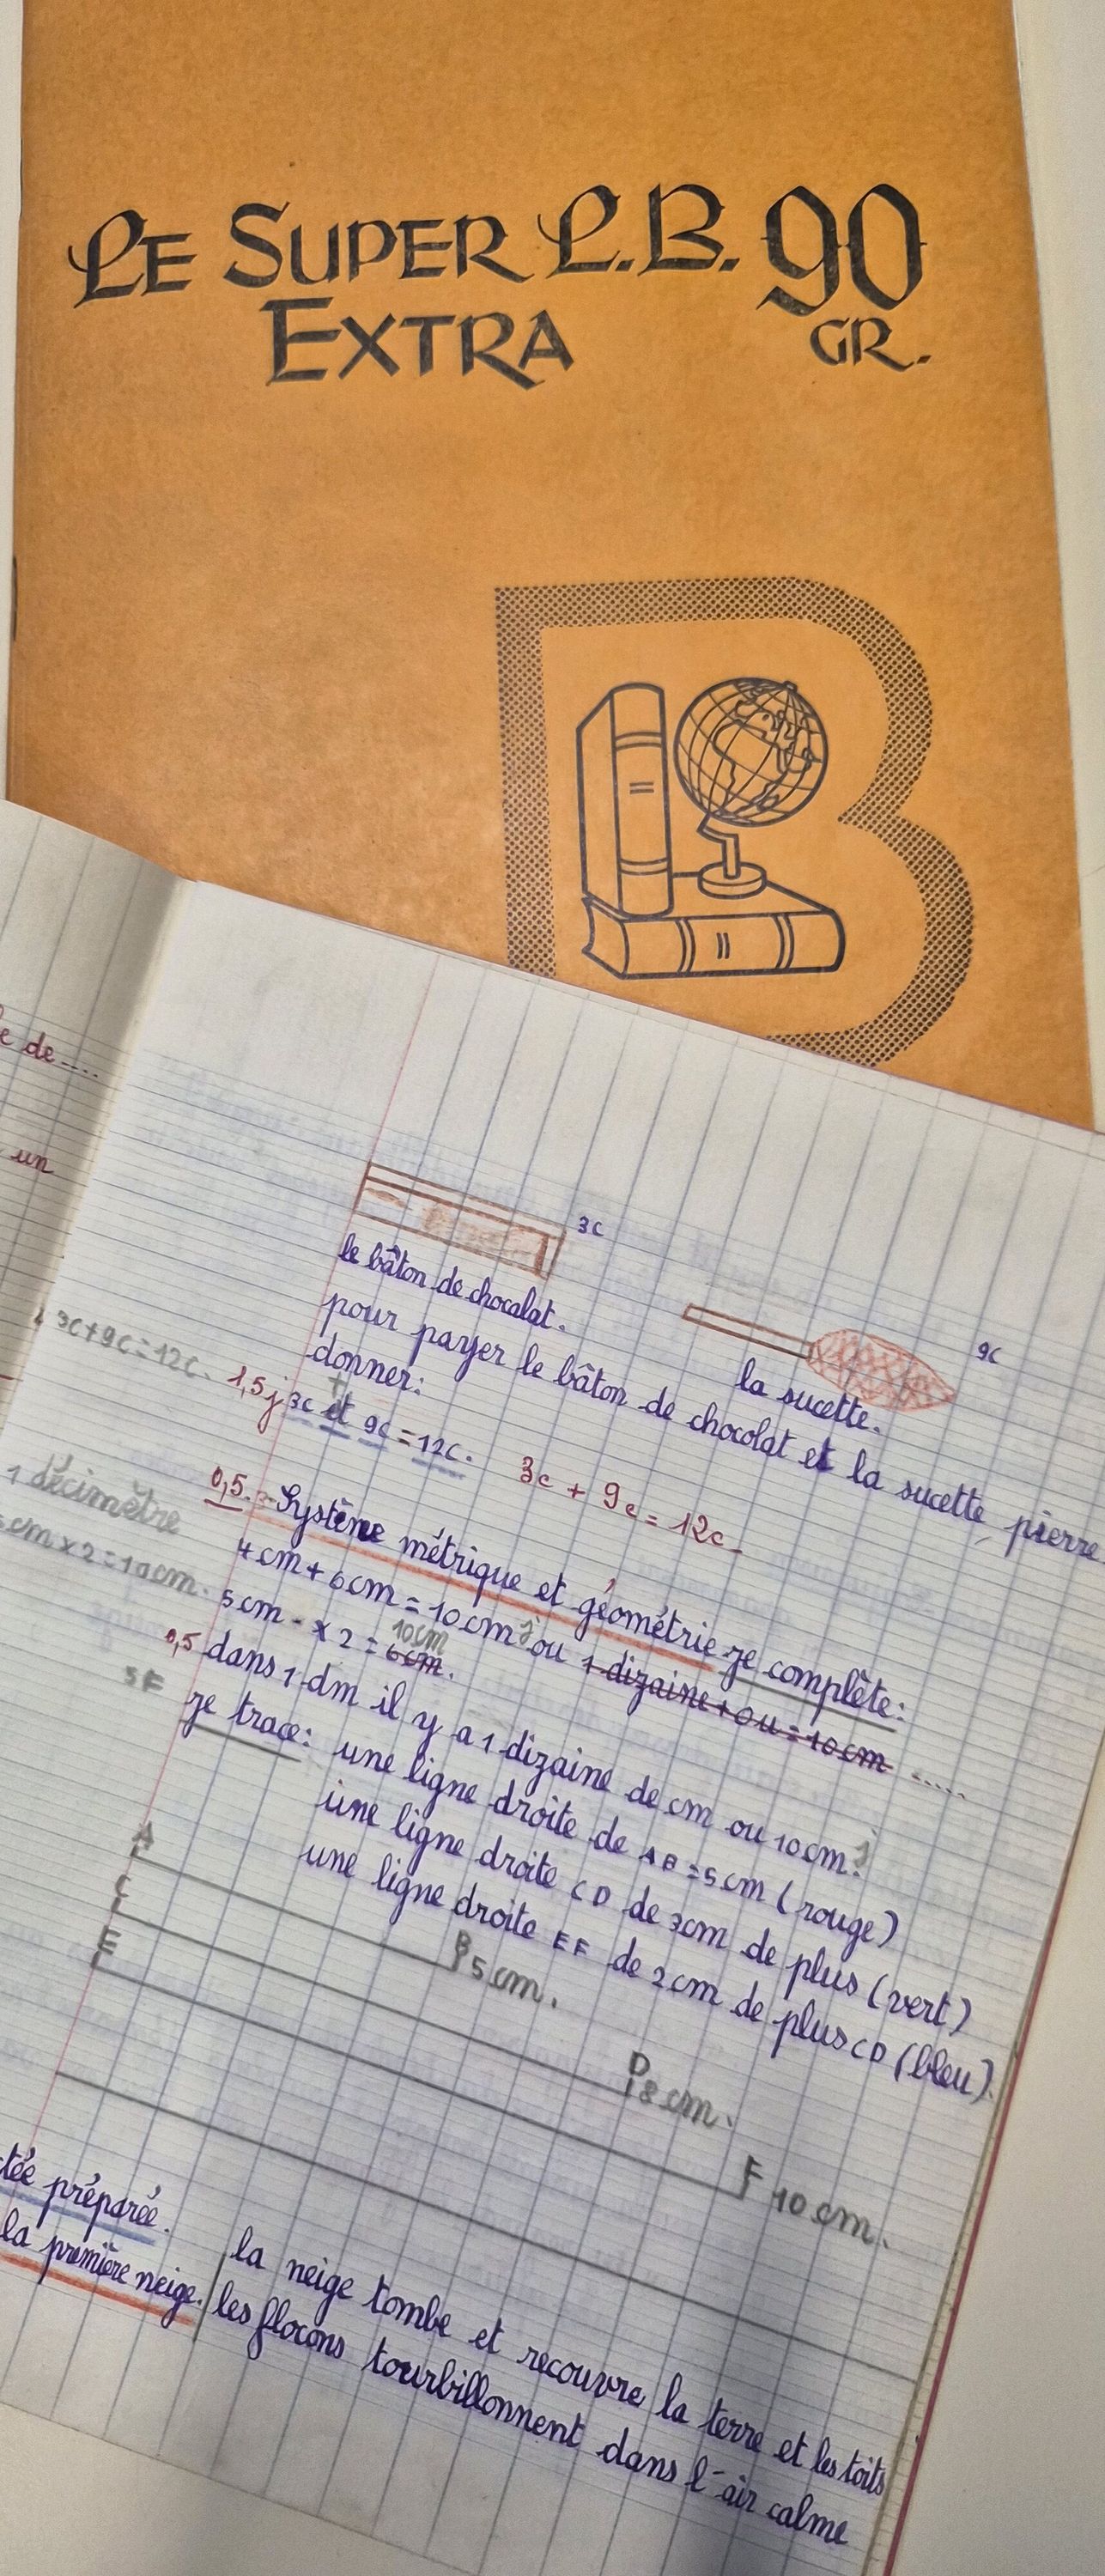 LE SUPER L.B. 90
EXTRA GR.
e de....
un
3c
le bâton de chocalat.
9c
la sucette.
pour payer le bâton de chocolat et la sucette pierre
donner:
3c+9c=12c.
1,5 j 3c et 9c = 12c. 3c + 9c = 12c.
+
0,5. Système métrique et géométrie je complète:
1 décimètre
4cm + 6cm = 10cm ou 1 dizaine + 0u = 10cm .....
cm x 2 = 10cm.
5cm - x 2 = 6cm.
10cm
0,5 dans 1 dm il y a 1 dizaine de cm ou 10cm.
je trace: une ligne droite de AB = 5cm (rouge)
une ligne droite CD de 3cm de plus (vert)
une ligne droite EF de 2cm de plus CD (bleu).
A
B 5cm.
C
D 8cm.
E
F 10cm.
tée préparée.
la première neige.
la neige tombe et recouvre la terre et les toits
les flocons tourbillonnent dans l'air calme